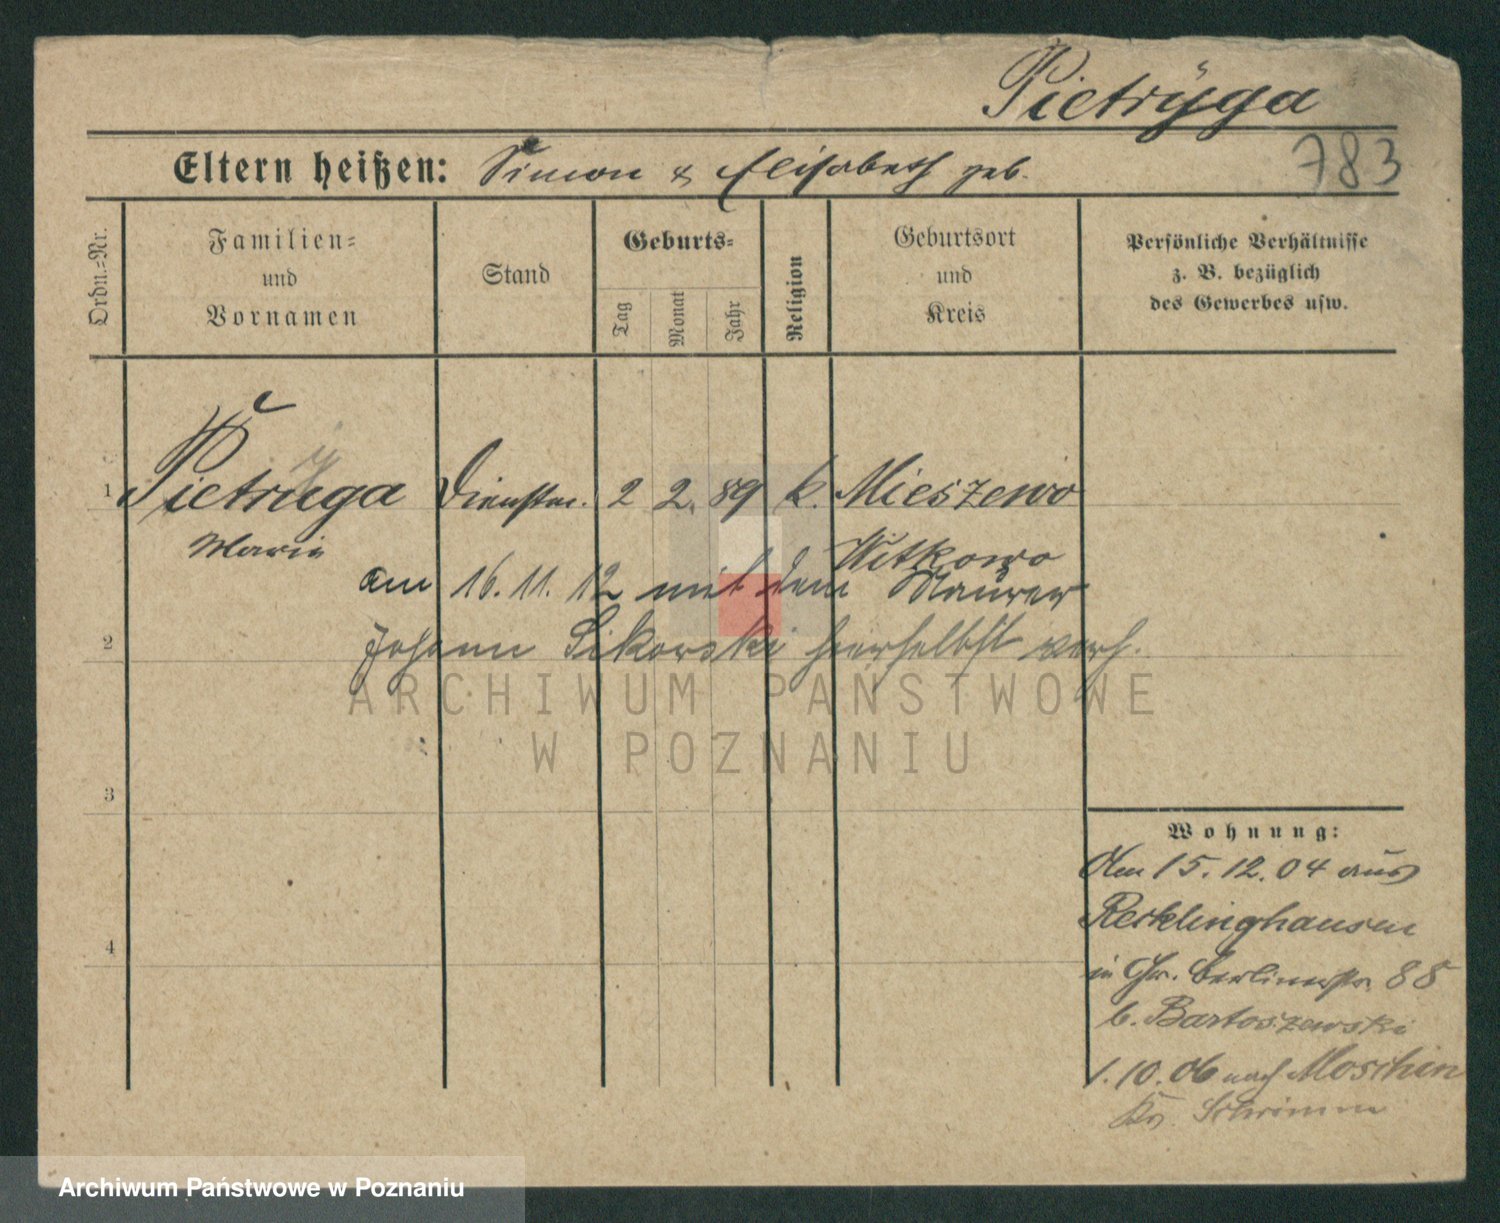 Pietrÿga
783
Eltern heißen: Simon & Elisabeth geb.
Ordn.=Nr.
Familien=
und
Vornamen
Stand
Geburts=
Tag
Monat
Jahr
Religion
Geburtsort
und
Kreis
Persönliche Verhältnisse
z. B. bezüglich
des Gewerbes usw.
1 Pietryga Dienstm. 2 2. 89 k. Mieszewo
Marie Witkowo
am 16. 11. 12 mit dem Maurer
2 Johann Sikorski hierselbst verh.
3
4
Wohnung:
Am 15. 12. 04 aus
Recklinghausen
in Gr. Berlinerstr. 88
b. Bartoszewski
1. 10. 06 nach Moschin
Kr. Schrimm
ARCHIWUM PAŃSTWOWE
W POZNANIU
Archiwum Państwowe w Poznaniu